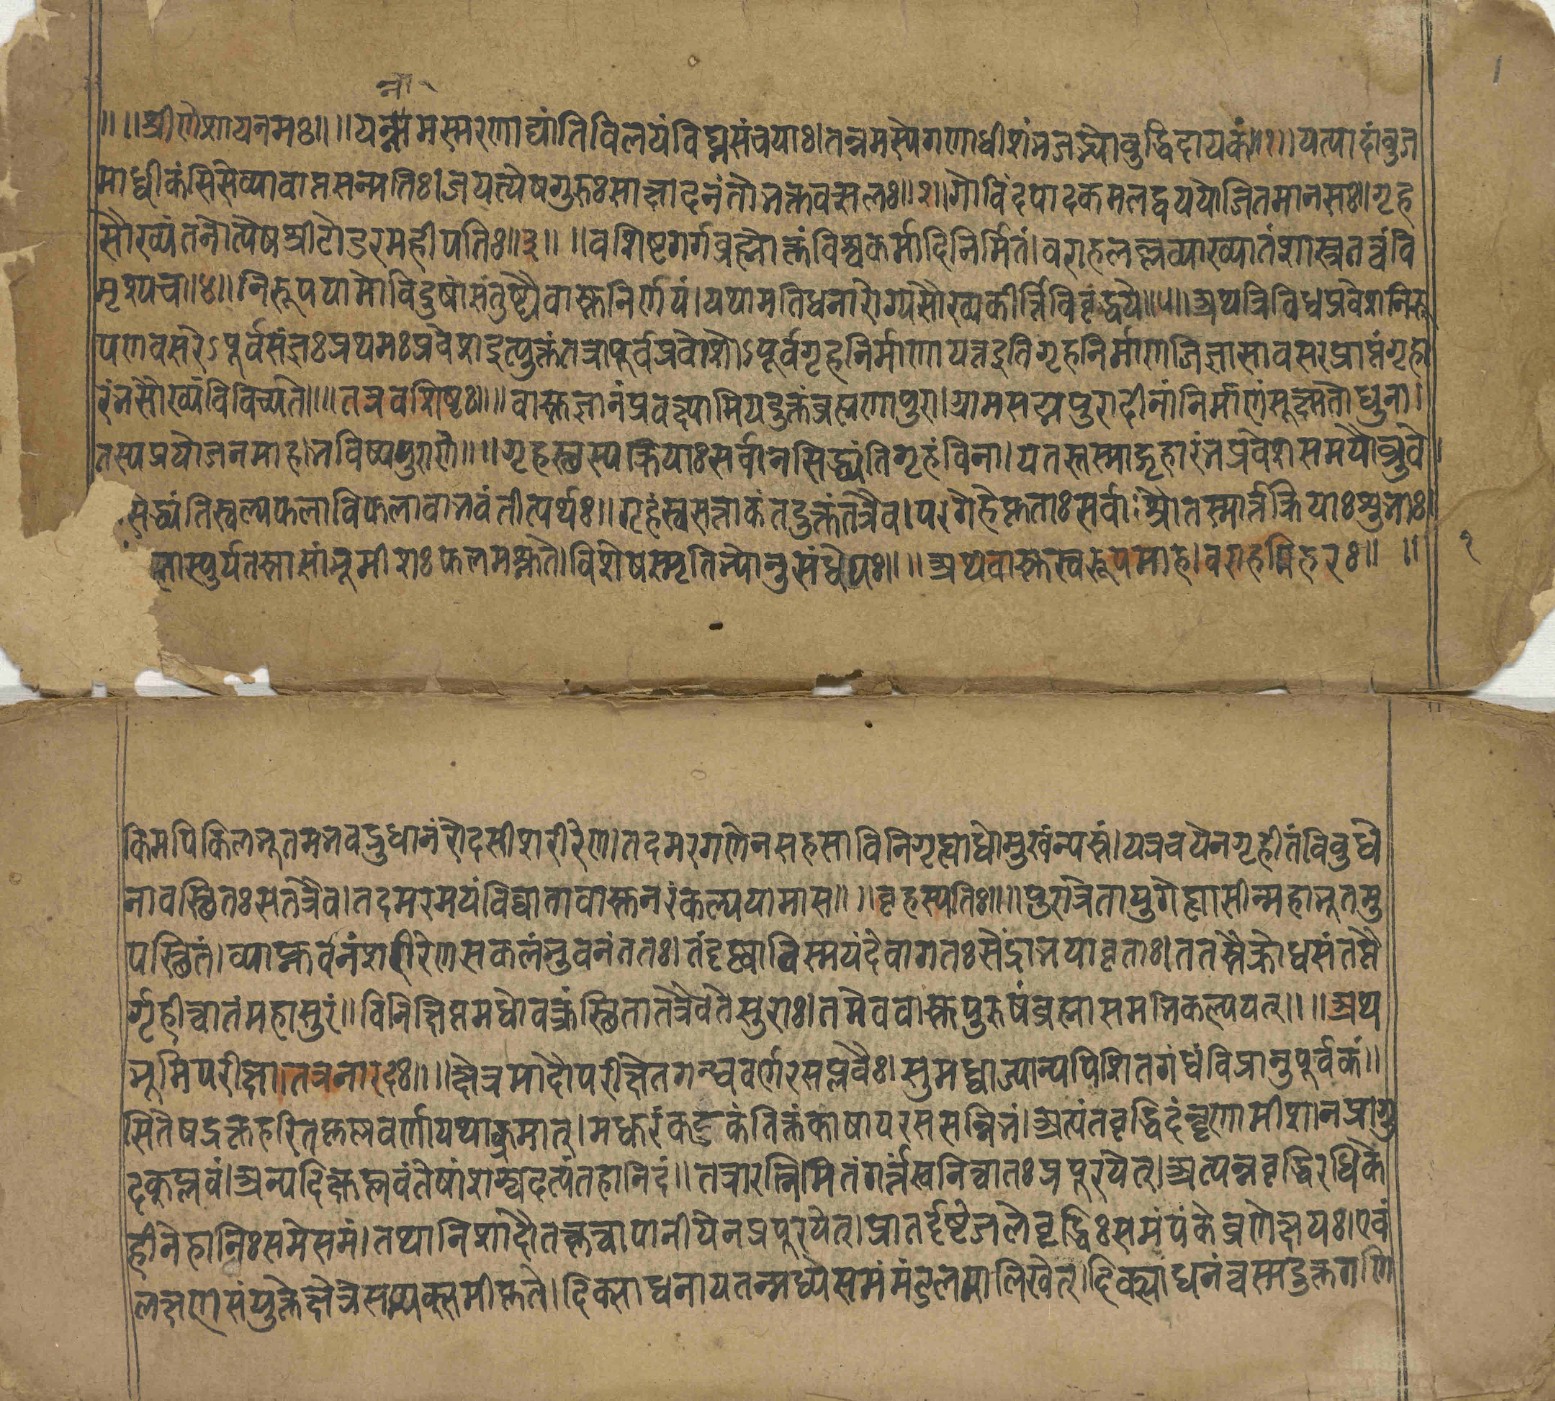 न्ना
॥ ॥श्रीगणेशायनमः॥ ॥यन्नाममस्मरणाद्यांतिविलयंविघ्नसंचयाः।तन्नमस्येगणाधीशंभजद्भ्योबुद्धिदायकं॥१॥यत्पादांबुज
माध्वीकंसिसेव्यावाप्तसन्मतिः।जयत्येषगुरुःसाक्षादनंतोभक्तवत्सलः॥२॥गोविंदपादकमलद्वययोजितमानसः।गृह
सौख्यंतनोत्येषश्रीटोडरमहीपतिः॥३॥ ॥वशिष्टगर्गब्रह्मोक्तंविश्वकर्मादिनिर्मितं।वराहलल्लव्याख्यातंशास्त्रतत्वंवि
मृश्यच॥४॥निरूपयामोविदुषांसंतुष्ट्यैवास्तुनिर्णयं।यथामतिधनारोग्यसौख्यकीर्त्तिविवृंद्धये॥५॥अथत्रिविधप्रवेशनिरू
पणावसरेऽपूर्वसंज्ञःप्रथमःप्रवेशइत्युक्तंतत्रापूर्वप्रवेशोऽपूर्वगृहनिर्माणायत्तइतिगृहनिर्माणजिज्ञासावसरप्राप्तंगृहा
रंभसौख्यंविविच्यते॥॥तत्रवशिष्ठः॥॥वास्तुज्ञानंप्रवक्ष्यामियदुक्तंब्रह्मणापुरा।ग्रामसद्मपुरादीनांनिर्माणंसूक्ष्मतोधुना।
तस्यप्रयोजनमाह।भविष्यपुराणे॥॥गृहस्थस्यक्रियाःसर्वानसिद्ध्यंतिगृहंविना।यतस्तस्माद्गृहारंभप्रवेशसमयौब्रुवे।
सिद्ध्यंतिस्वल्पफलाविफलावाभवंतीत्यर्थः॥गृहंस्वसत्ताकंतदुक्तंतत्रैव।परगेहेकृताःसर्वाःश्रौतस्मार्त्तक्रियाःशुभाः।
लास्युर्यतस्तासांभूमीशःफलमश्नुते।विशेषस्मृतिभ्योनुसंधेयः॥॥अथवास्तुस्वरूपमाह।वराहमिहिरः॥ ॥ १
किमपिकिलभूतमभवद्रुधानंरोदसीशरीरेण।तदमरगणेनसहसाविनिगृह्याधोमुखंन्यस्तं।यत्रचयेनगृहीतंविबुधे
नावस्थितःसतत्रैव।तदमरमयंविधातावास्तुनरंकल्पयामास॥॥बृहस्पतिः॥॥पुरात्रेतायुगेह्यासीन्महाभूतमु
पस्थितं।व्याप्नुवंनंशरीरेणसकलंभुवनंततः।तंदृष्ट्वाविस्मयंदेवागतःसेंद्राभयावृताः।ततस्तैक्रोधसंतप्तै
र्गृहीत्वातंमहासुरं॥विनिक्षिप्तमधोवक्त्रंस्थितातत्रैवतेसुराः।तमेववास्तुपुरुषंब्रह्मासमभिकल्पयत्॥॥अथ
भूमिपरीक्षा।तत्रनारदः॥॥क्षेत्रमादौपरीक्षेतगन्धवर्णरसप्लवैः।सुमध्वाज्यान्यपिशितगंधंविप्रानुपूर्वकं॥
सितेषद्रक्तहरितकृष्णवर्णंयथाक्रमात्।मधुरंकटुकंतिक्तंकाषायरससन्निभं।अत्यंतवृद्धिदंनॄणामीशानप्रागु
दक्प्लवं।अन्यदिक्षुप्लवंतेषांशश्वदत्यंतहानिदं॥तत्रारत्निमितंगर्त्तंखनित्वातःप्रपूरयेत्।अत्यन्नवृद्धिरधिके
हीनेहानिःसमेसमं।तथानिशादौतत्कृत्वापानीयेनप्रपूरयेत्।प्रातर्दृष्टेजलेवृद्धिःसमंपंकेव्रणेक्षयः।एवं
लक्षणसंयुक्तेक्षेत्रेसम्यक्समीकृते।दिक्साधनायतन्मध्येसमंमंडलमालिखेत्।दिक्साधनंत्वस्मदुक्तगणि